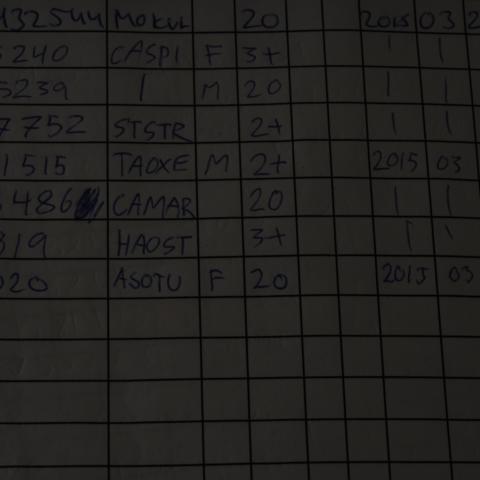 432544 MOKUL 20 2015 03 2
240 CASPI F 3+ | |
5239 | M 20 | |
7752 STSTR 2+ | |
1515 TAOXE M 2+ 2015 03
486 CAMAR 20 | |
819 HAOST 3+ | \
020 ASOTU F 20 2015 03